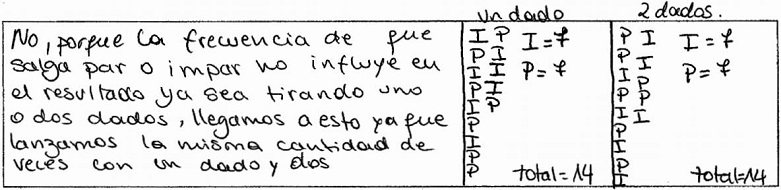 un dado
2 dados.
No, porque la frecuencia de que
salga par o impar no influye en
el resultado ya sea tirando uno
o dos dados, llegamos a esto ya que
lanzamos la misma cantidad de
veces con un dado y dos
I P I=7
P I
I I P=7
P I
I P
P
I
P
P
total=14
P I I=7
P I
I P P=7
I P
P I
I
P
P
I
total=14